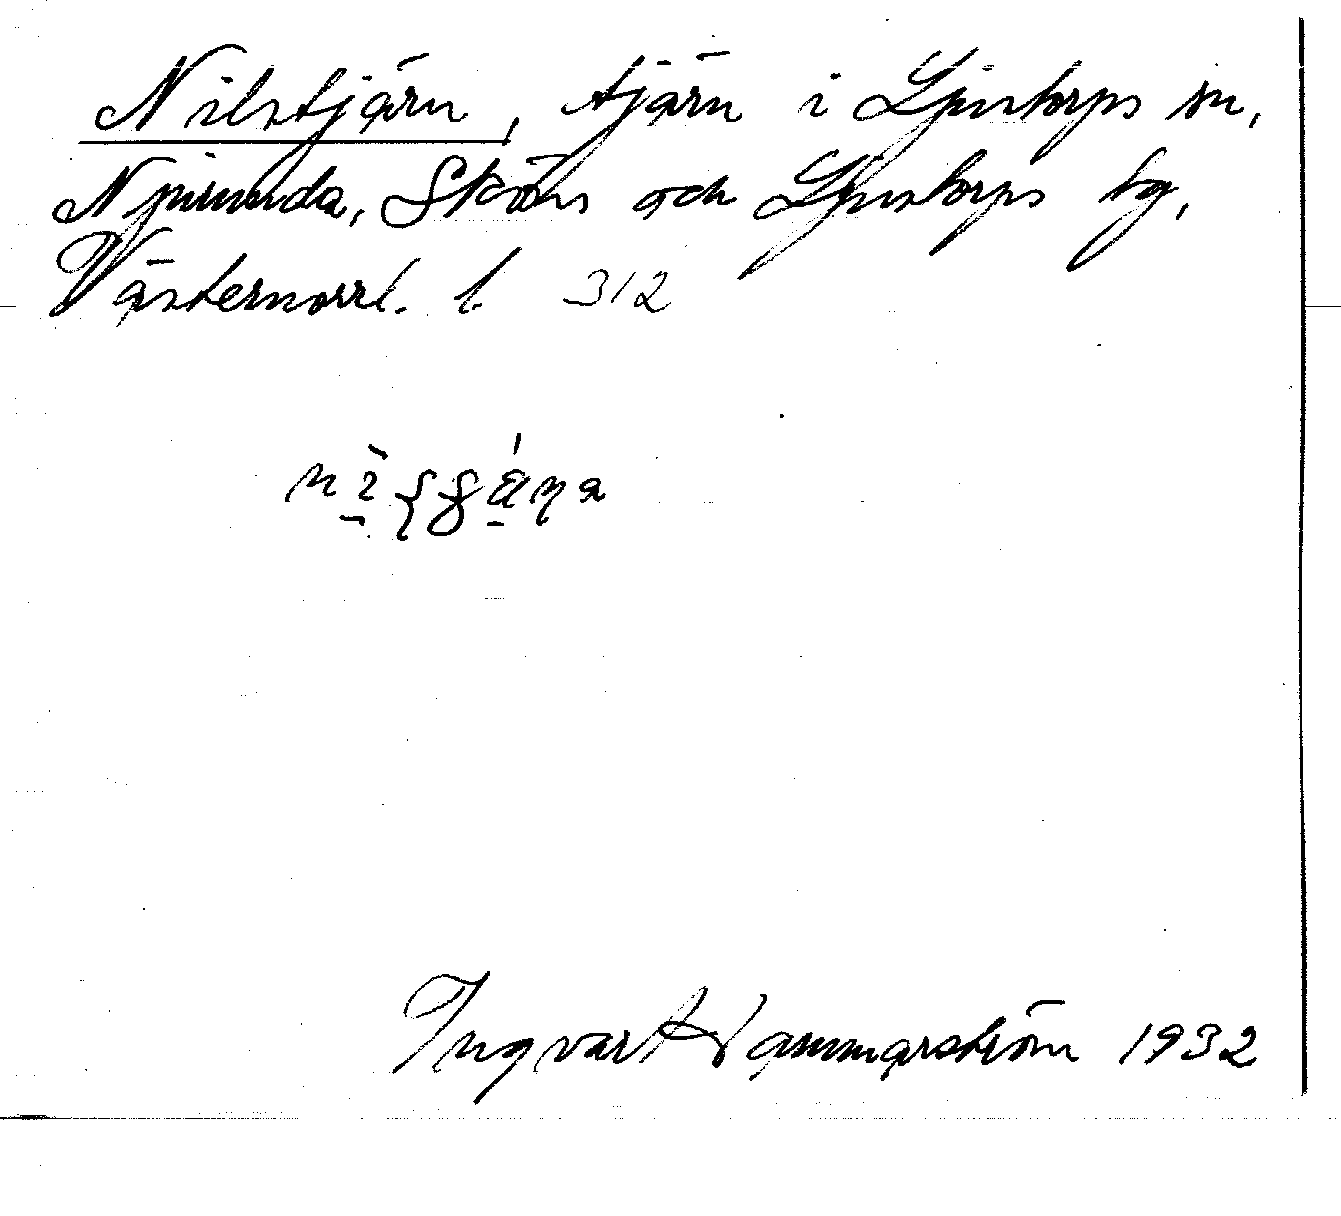 Nilstjärn, tjärn i Ljustorps sn,
Njurunda, Sköns och Ljustorps tg,
Västernorrl. l. 312
Ingvar Hammarström 1932